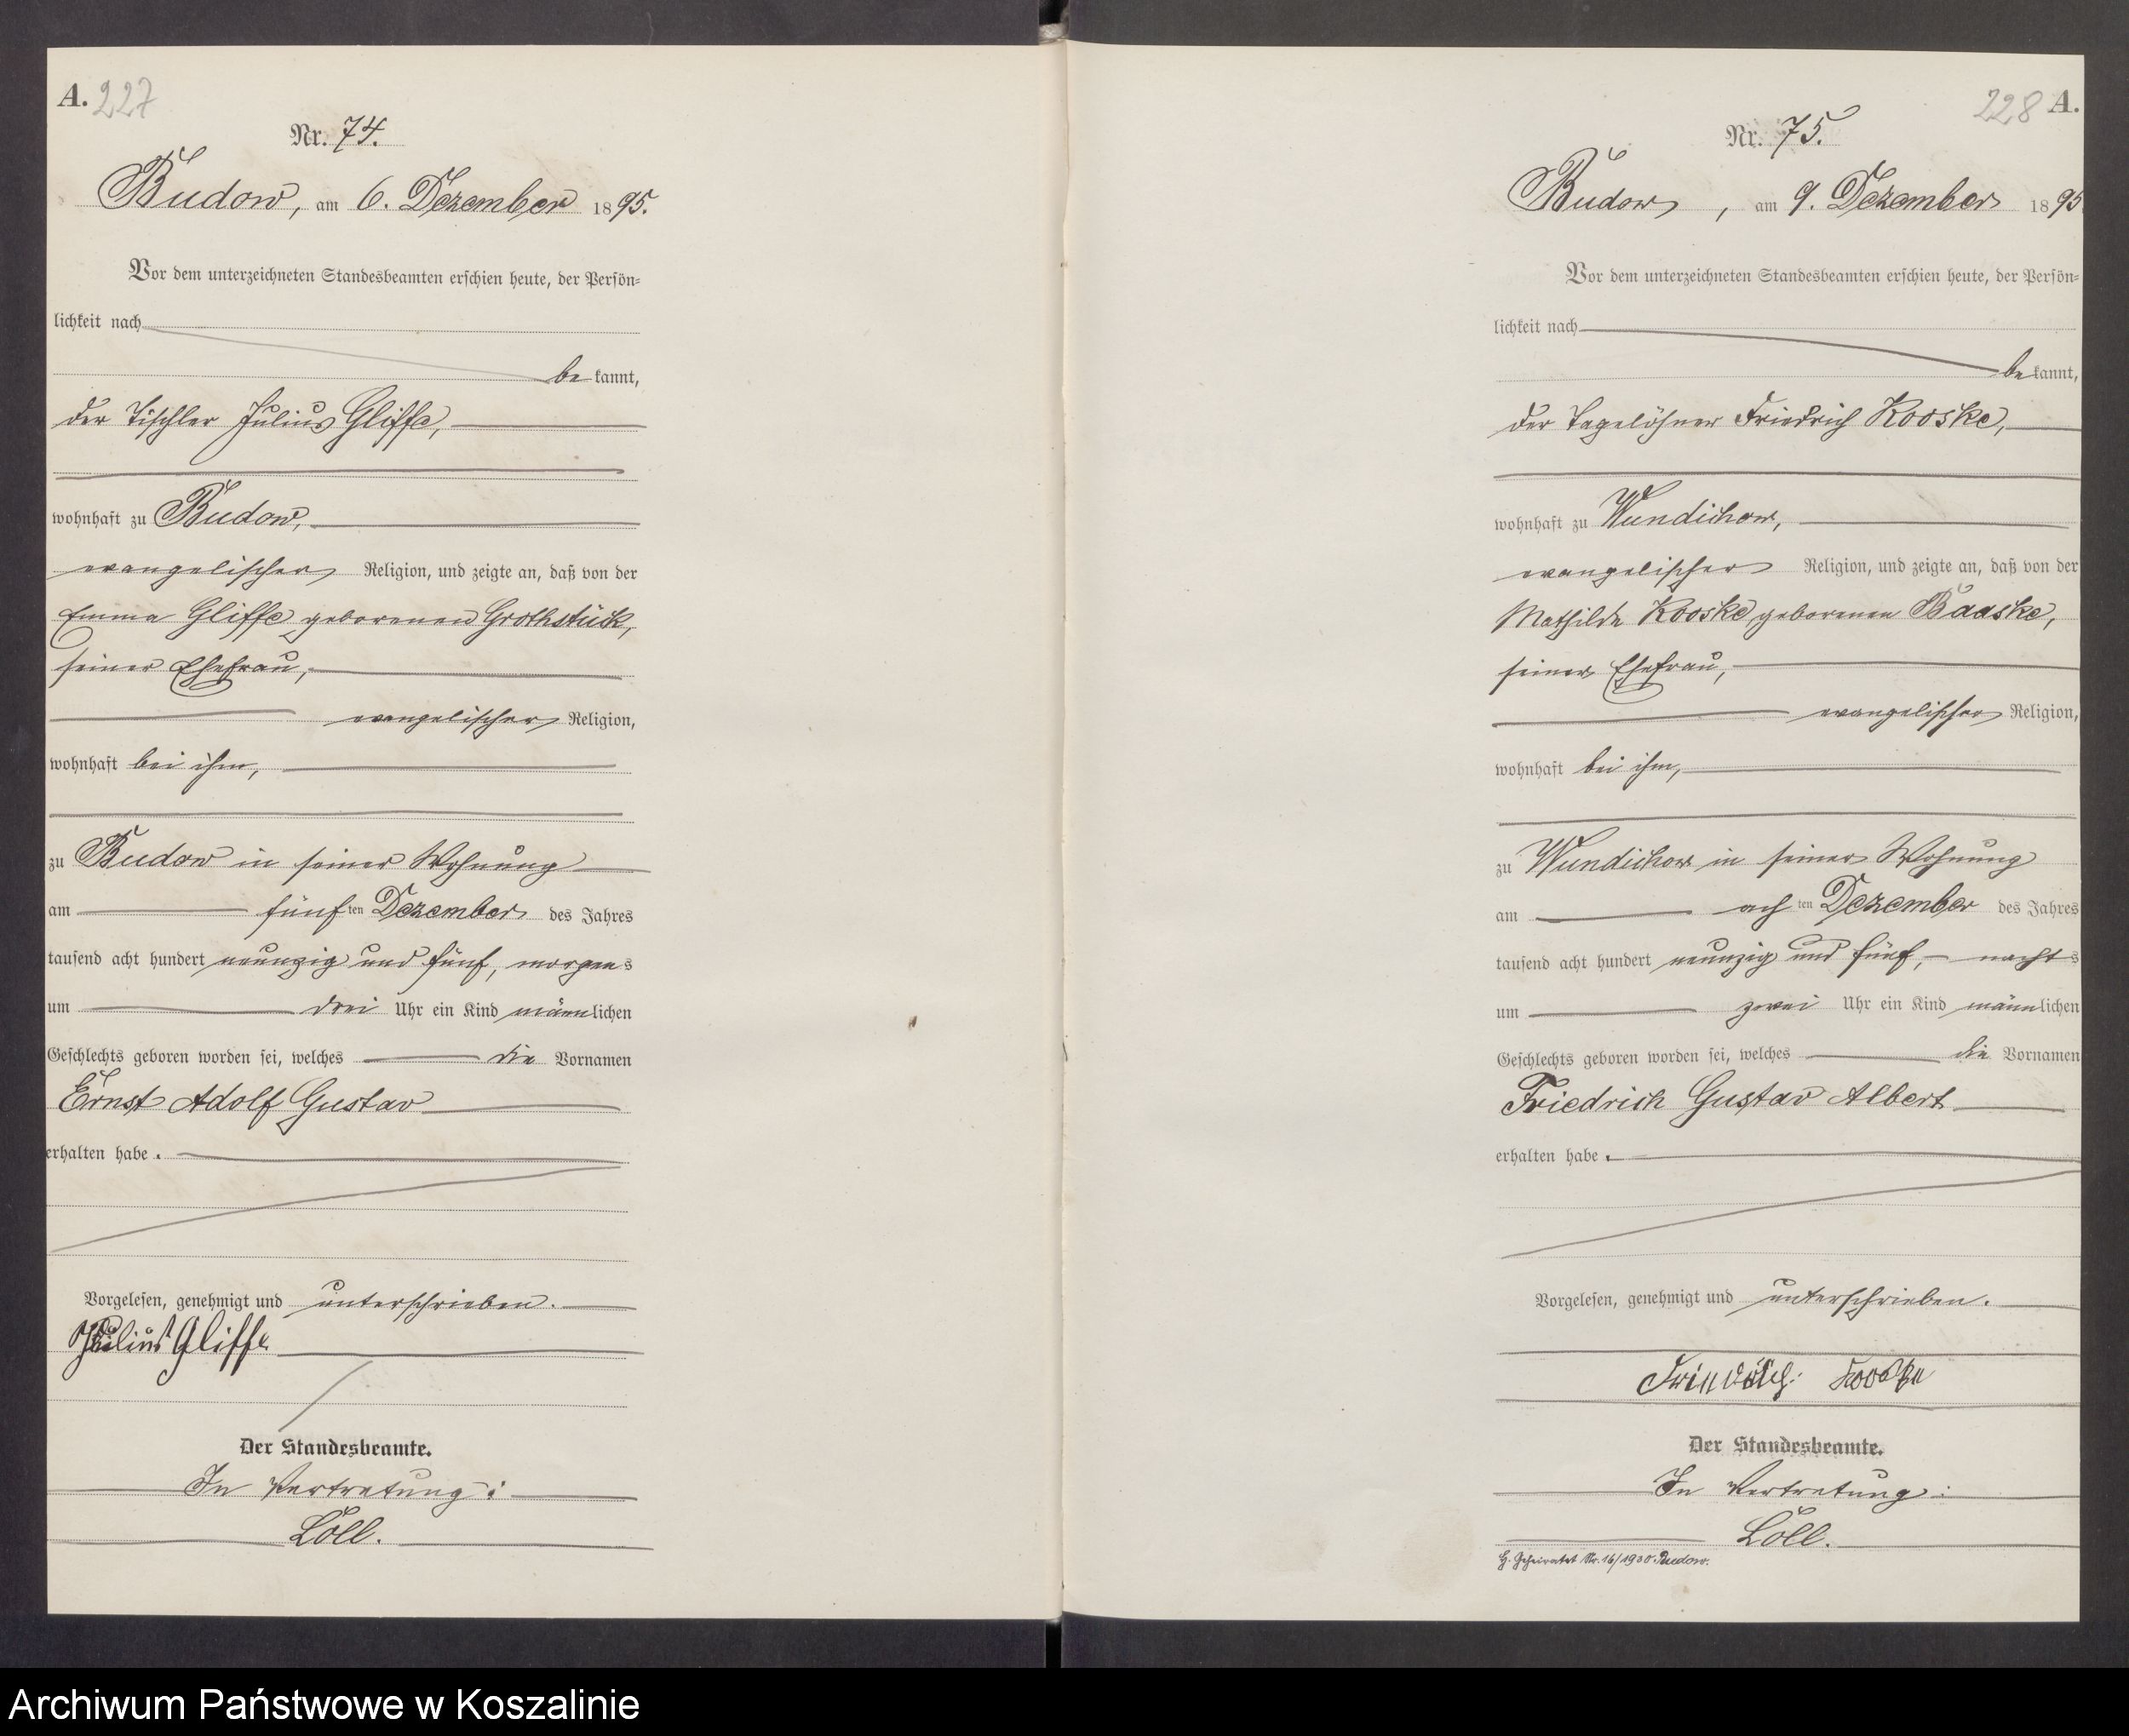 A. 227
Nr. 74.
Budow, am 6. Dezember 1895.
Vor dem unterzeichneten Standesbeamten erschien heute, der Persön=
lichkeit nach
be kannt,
der Tischler Julius Gliffe,
wohnhaft zu Budow,
evangelischer Religion, und zeigte an, daß von der
Emma Gliffe geborenen Grothstück,
seiner Ehefrau,
evangelischer Religion,
wohnhaft bei ihm,
zu Budow in seiner Wohnung
am fünf ten Dezember des Jahres
tausend acht hundert neunzig und fünf, morgens
um drei Uhr ein Kind männlichen
Geschlechts geboren worden sei, welches die Vornamen
Ernst Adolf Gustav
erhalten habe.
Vorgelesen, genehmigt und unterschrieben.
Julius Gliffe
Der Standesbeamte.
In Vertretung:
Löll.
228 A.
Nr. 75.
Budow, am 9. Dezember 1895
Vor dem unterzeichneten Standesbeamten erschien heute, der Persön=
lichkeit nach
be kannt,
der Tagelöhner Friedrich Kooske,
wohnhaft zu Wundichow,
evangelischer Religion, und zeigte an, daß von der
Mathilde Kooske, geborenen Baaske,
seiner Ehefrau,
evangelischer Religion,
wohnhaft bei ihm,
zu Wundichow in seiner Wohnung
am ach ten Dezember des Jahres
tausend acht hundert neunzig und fünf, nachts
um zwei Uhr ein Kind männlichen
Geschlechts geboren worden sei, welches die Vornamen
Friedrich Gustav Albert
erhalten habe.
Vorgelesen, genehmigt und unterschrieben.
Friedrich Kooske
Der Standesbeamte.
In Vertretung:
Löll.
Geheiratet Nr. 16/1930 Budow.
Archiwum Państwowe w Koszalinie